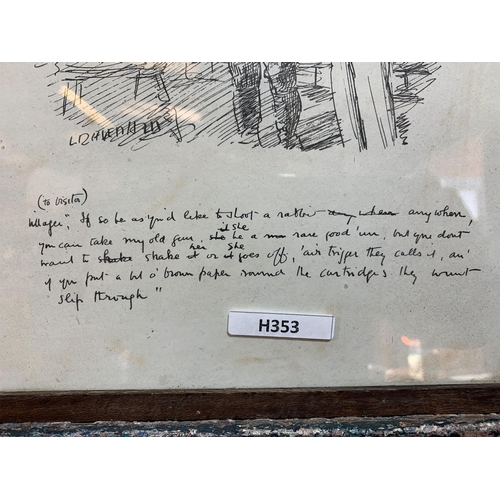 L RAVEN HILL
(To Visitor)
Villager, "If so be as you'd like to shoot a rabbit any when anywhere,
you can take my old gun, she she be a rare good 'un, but you dont
want to shake shake it or it goes off, 'air trigger they calls it, an'
her she
if you put a bit o' brown paper round the cartridges they wunt
slip through"
H353